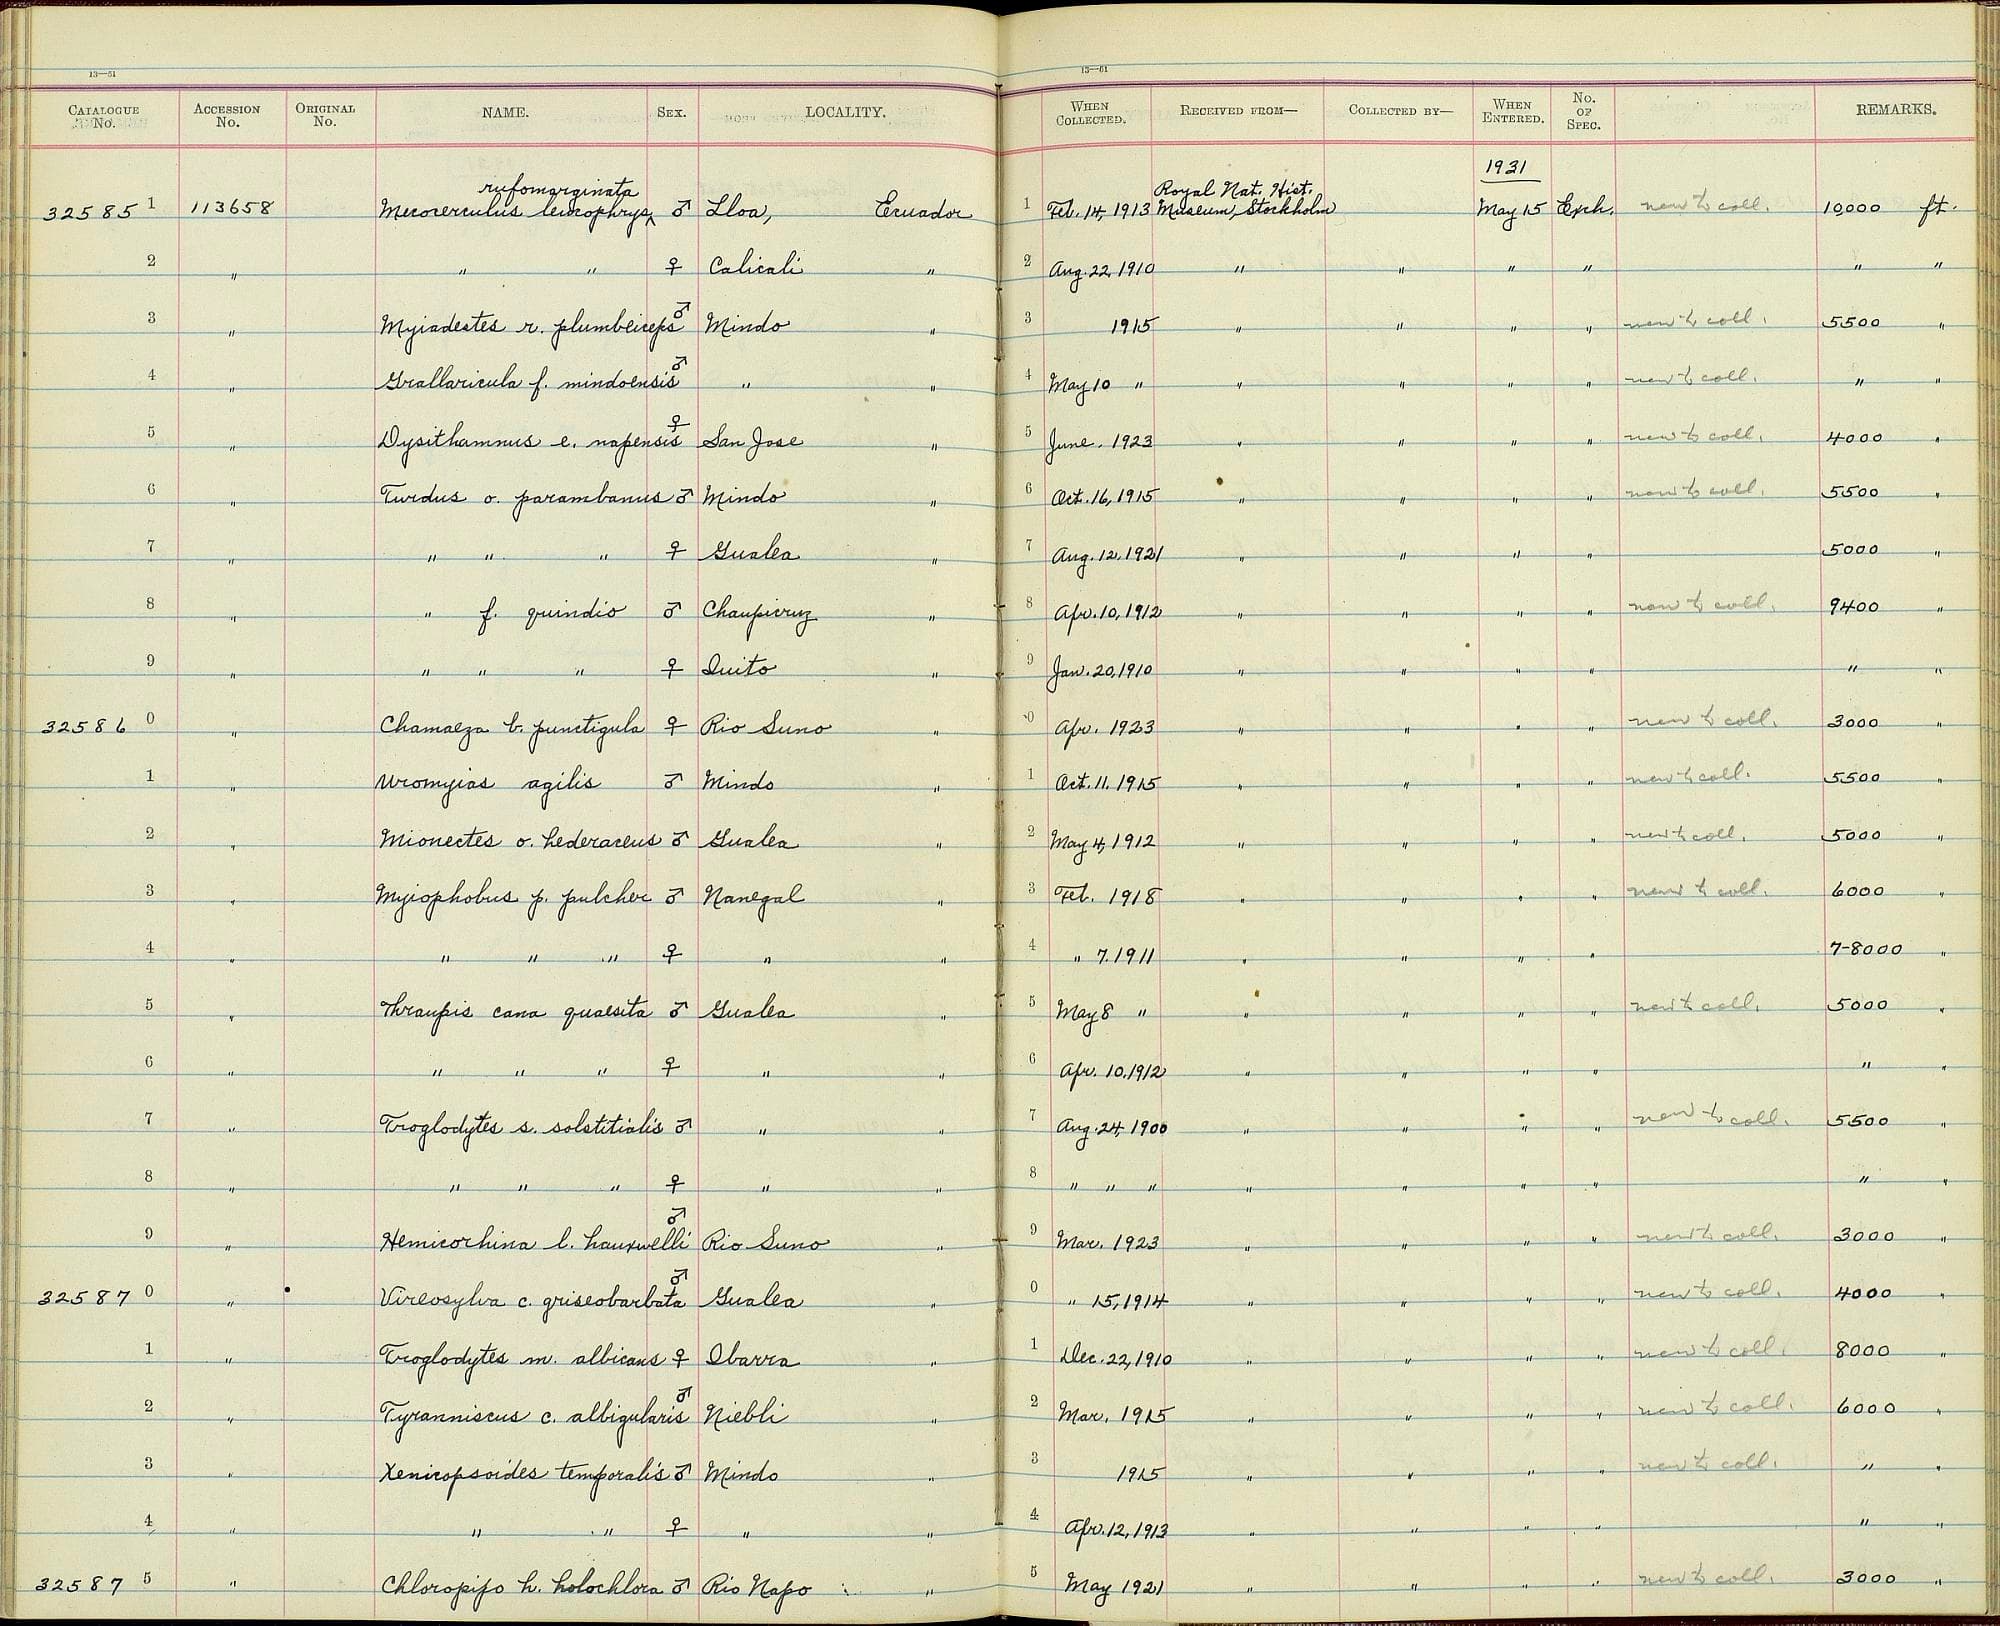 13—61 13—61
CATALOGUE No. ACCESSION No. ORIGINAL No. NAME. SEX. LOCALITY. WHEN COLLECTED. RECEIVED FROM— COLLECTED BY— WHEN ENTERED. No. OF SPEC. REMARKS.
1931
rufomarginata Royal Nat. Hist.
32585 1 113658 Mecocerculus leucophrys ^ ♂ Lloa, Ecuador 1 Feb. 14, 1913 Museum, Stockholm May 15 Exch. new to coll. 10,000 ft.
2 " " " ♀ Calicali " 2 Aug. 22, 1910 " " " " " "
3 " Myiadestes r. plumbeiceps ♂ Mindo " 3 1915 " " " " new to coll. 5500 "
4 " Grallaricula f. mindoensis ♂ " " 4 May 10 " " " " " new to coll. " "
5 " Dysithamnus e. napensis ♀ San Jose " 5 June. 1923 " " " " new to coll. 4000 "
6 " Turdus o. parambanus ♂ Mindo " 6 Oct. 16, 1915 " " " " new to coll. 5500 "
7 " " " " ♀ Gualea " 7 Aug. 12, 1921 " " " " 5000 "
8 " " f. quindio ♂ Chaupicruz " 8 Apr. 10, 1912 " " " " new to coll. 9400 "
9 " " " " ♀ Quito " 9 Jan. 20, 1910 " " " " " "
32586 0 " Chamaeza b. punctigula ♀ Rio Suno " 0 Apr. 1923 " " " " new to coll. 3000 "
1 " Uromyias agilis ♂ Mindo " 1 Oct. 11. 1915 " " " " new to coll. 5500 "
2 " Mionectes o. hederaceus ♂ Gualea " 2 May 4, 1912 " " " " new to coll. 5000 "
3 " Myiophobus p. pulcher ♂ Nanegal " 3 Feb. 1918 " " " " new to coll. 6000 "
4 " " " " ♀ " " 4 " 7. 1911 " " " " 7-8000 "
5 " Thraupis cana quaesita ♂ Gualea " 5 May 8 " " " " " new to coll. 5000 "
6 " " " " ♀ " " 6 Apr. 10. 1912 " " " " " "
7 " Troglodytes s. solstitialis ♂ " " 7 Aug. 24, 1900 " " " " new to coll. 5500 "
8 " " " " ♀ " " 8 " " " " " " " " "
9 " Hemicorhina l. hauxwelli ♂ Rio Suno " 9 Mar. 1923 " " " " new to coll. 3000 "
32587 0 " Vireosylva c. griseobarbata ♂ Gualea " 0 " 15, 1914 " " " " new to coll. 4000 "
1 " Troglodytes m. albicans ♀ Ibarra " 1 Dec. 22, 1910 " " " " new to coll. 8000 "
2 " Tyranniscus c. albigularis ♂ Niebli " 2 Mar. 1915 " " " " new to coll. 6000 "
3 " Xenicopsoides temporalis ♂ Mindo " 3 1915 " " " " new to coll. " "
4 " " " ♀ " " 4 Apr. 12, 1913 " " " " " "
32587 5 " Chloropipo h. holochlora ♂ Rio Napo " 5 May 1921 " " " " new to coll. 3000 "